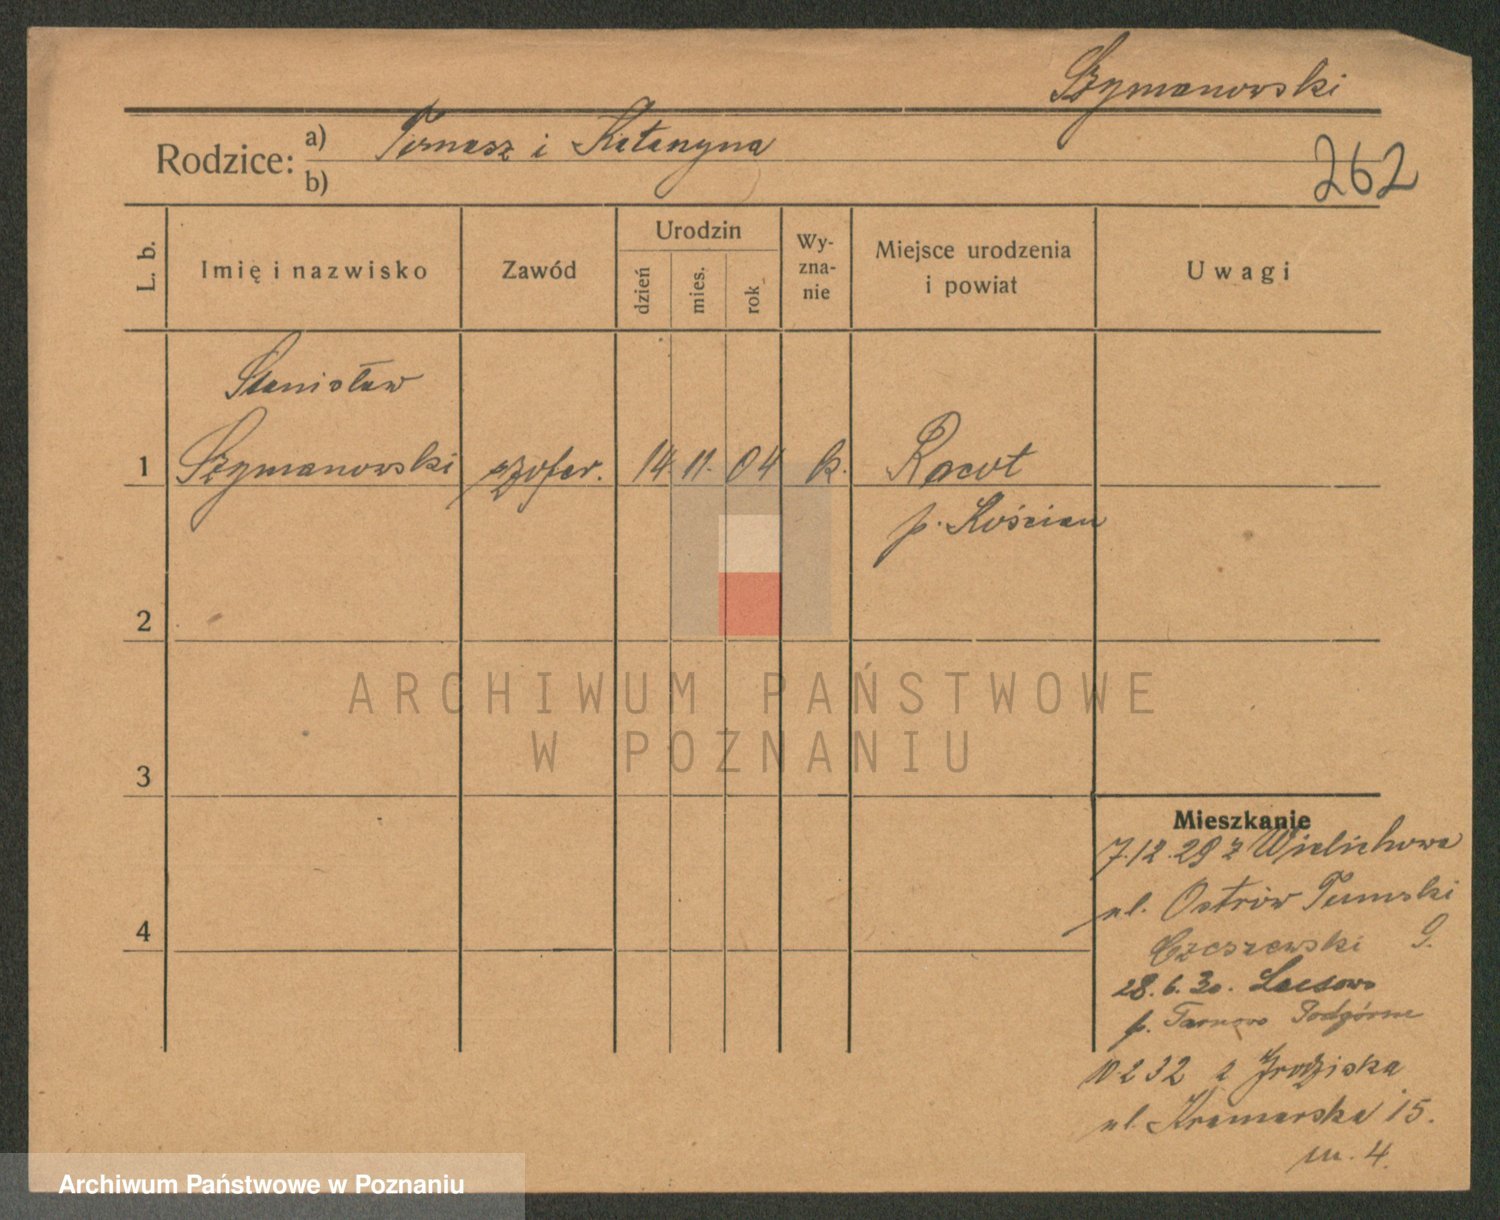 Szymanowski
Rodzice: a) Tomasz i Katarzyna
b)
262
L. b.
Imię i nazwisko
Zawód
Urodzin
dzień
mies.
rok
Wy-
zna-
nie
Miejsce urodzenia
i powiat
Uwagi
Stanisław
1 Szymanowski szofer. 14. 11. 04 k. Racot
p. Kościan
2
ARCHIWUM PAŃSTWOWE
W POZNANIU
3
Mieszkanie
7.12.29 z Wielichowa
4
ul. Ostrów Tumski
Czeszewski 9.
28.6.30. Lusowo
p. Tarnowo Podgórne
10 2 32 z Grodziska
ul. Kramarska 15.
m. 4.
Archiwum Państwowe w Poznaniu